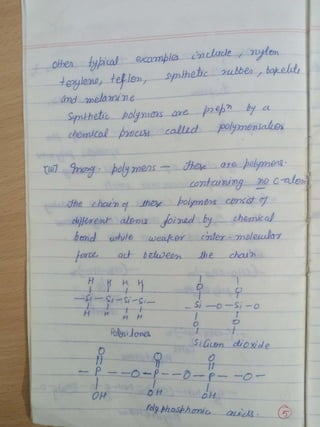 other typical examples include, nylon
terylene, teflon, synthetic rubber, bakelite
and melamine
Synthetic polymers are prepn by a
chemical process called polymerisation
(iii) Inorg. polymers — These are polymers
containing no C-atom
the chain of these polymers consist of
different atoms joined by chemical
bond while weaker inter-molecular
force act between the chain
H H H H
-Si-Si-Si-Si-
H H H H
Polysilanes
O O
- Si - O - Si - O
O O
Silicon dioxide
O O O
- P - O - P - O - P - O -
OH OH OH
Polyphosphoric acids.
5